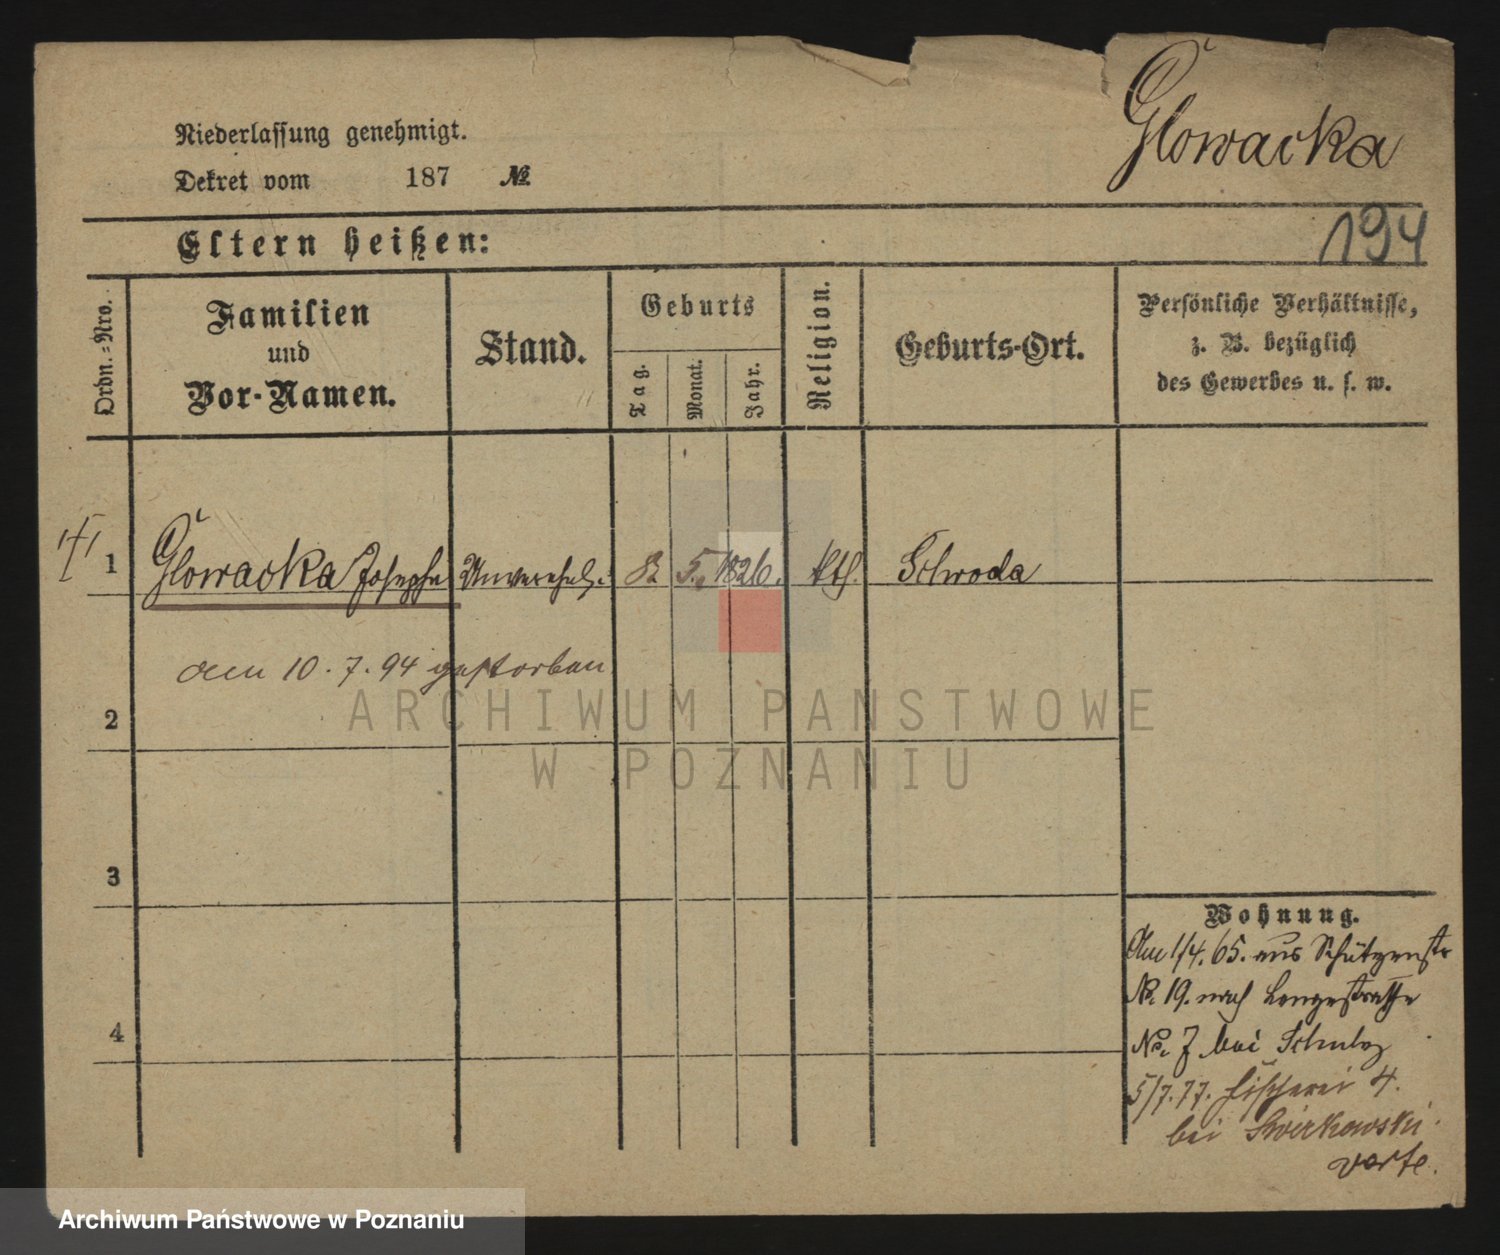 Glowacka
Niederlassung genehmigt.
Dekret vom 187 №
194
Eltern heißen:
Ordn.-Nro.
Familien
und
Vor-Namen.
Stand.
Geburts
Tag.
Monat.
Jahr.
Religion.
Geburts-Ort.
Persönliche Verhältnisse,
z. B. bezüglich
des Gewerbes u. s. w.
1 Glowacka Josepha Unverehel. 5. 1826. kth. Schroda
am 10. 7. 94 gestorben
2
3
4
Wohnung.
Am 1/4. 65. aus Schützenstr
No. 19. nach Langestrasse
No. 7 bei Schulz
5/7. 77. Fischerei 4.
bei Swirkowski
ARCHIWUM PAŃSTWOWE
W POZNANIU
Archiwum Państwowe w Poznaniu